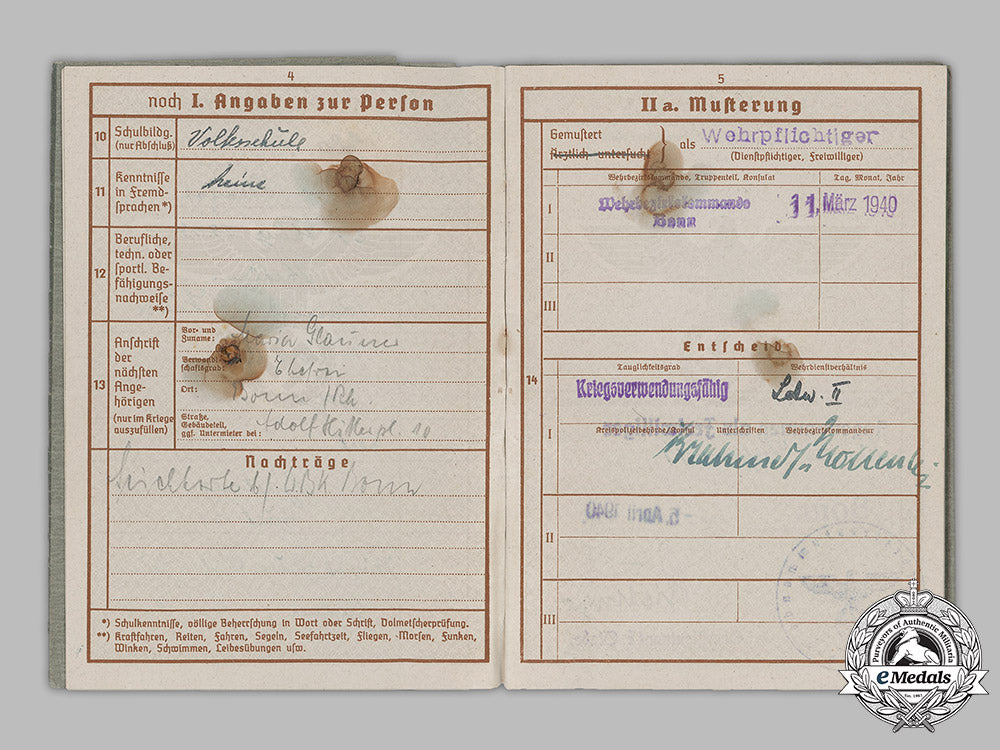 4
noch I. Angaben zur Person
10 Schulbildg. (nur Abschluß)
Volksschule
11 Kenntnisse in Fremdsprachen *)
keine
12 Berufliche, techn. oder sportl. Befähigungsnachweise **)
13 Anschrift der nächsten Angehörigen (nur im Kriege auszufüllen)
Vor- und Zuname: Maria
Verwandtschaftsgrad: Ehefrau
Ort: Bonn /Rh
Straße, Gebäudeteil, ggf. Untermieter bei: Adolf Hitlerpl. 10
Nachträge
WBK Bonn
*) Schulkenntnisse, völlige Beherrschung in Wort oder Schrift, Dolmetscherprüfung.
**) Kraftfahren, Reiten, Fahren, Segeln, Seefahrtzeit, Fliegen, Morsen, Funken,
Winken, Schwimmen, Leibesübungen usw.
5
II a. Musterung
Gemustert
ärztlich untersucht
als Wehrpflichtiger
(Dienstpflichtiger, Freiwilliger)
Wehrbezirkskommando, Truppenteil, Konsulat
Tag, Monat, Jahr
I
Wehrbezirkskommando
Bonn
11. März 1940
II
III
Entscheid
14
Tauglichkeitsgrad
Wehrdienstverhältnis
Kriegsverwendungsfähig
II
I
Kreispolizeibehörde/Konsul Unterschriften Wehrbezirkskommandeur
-5. April 1940
II
III
Purveyors of Authentic Militaria
eMedals